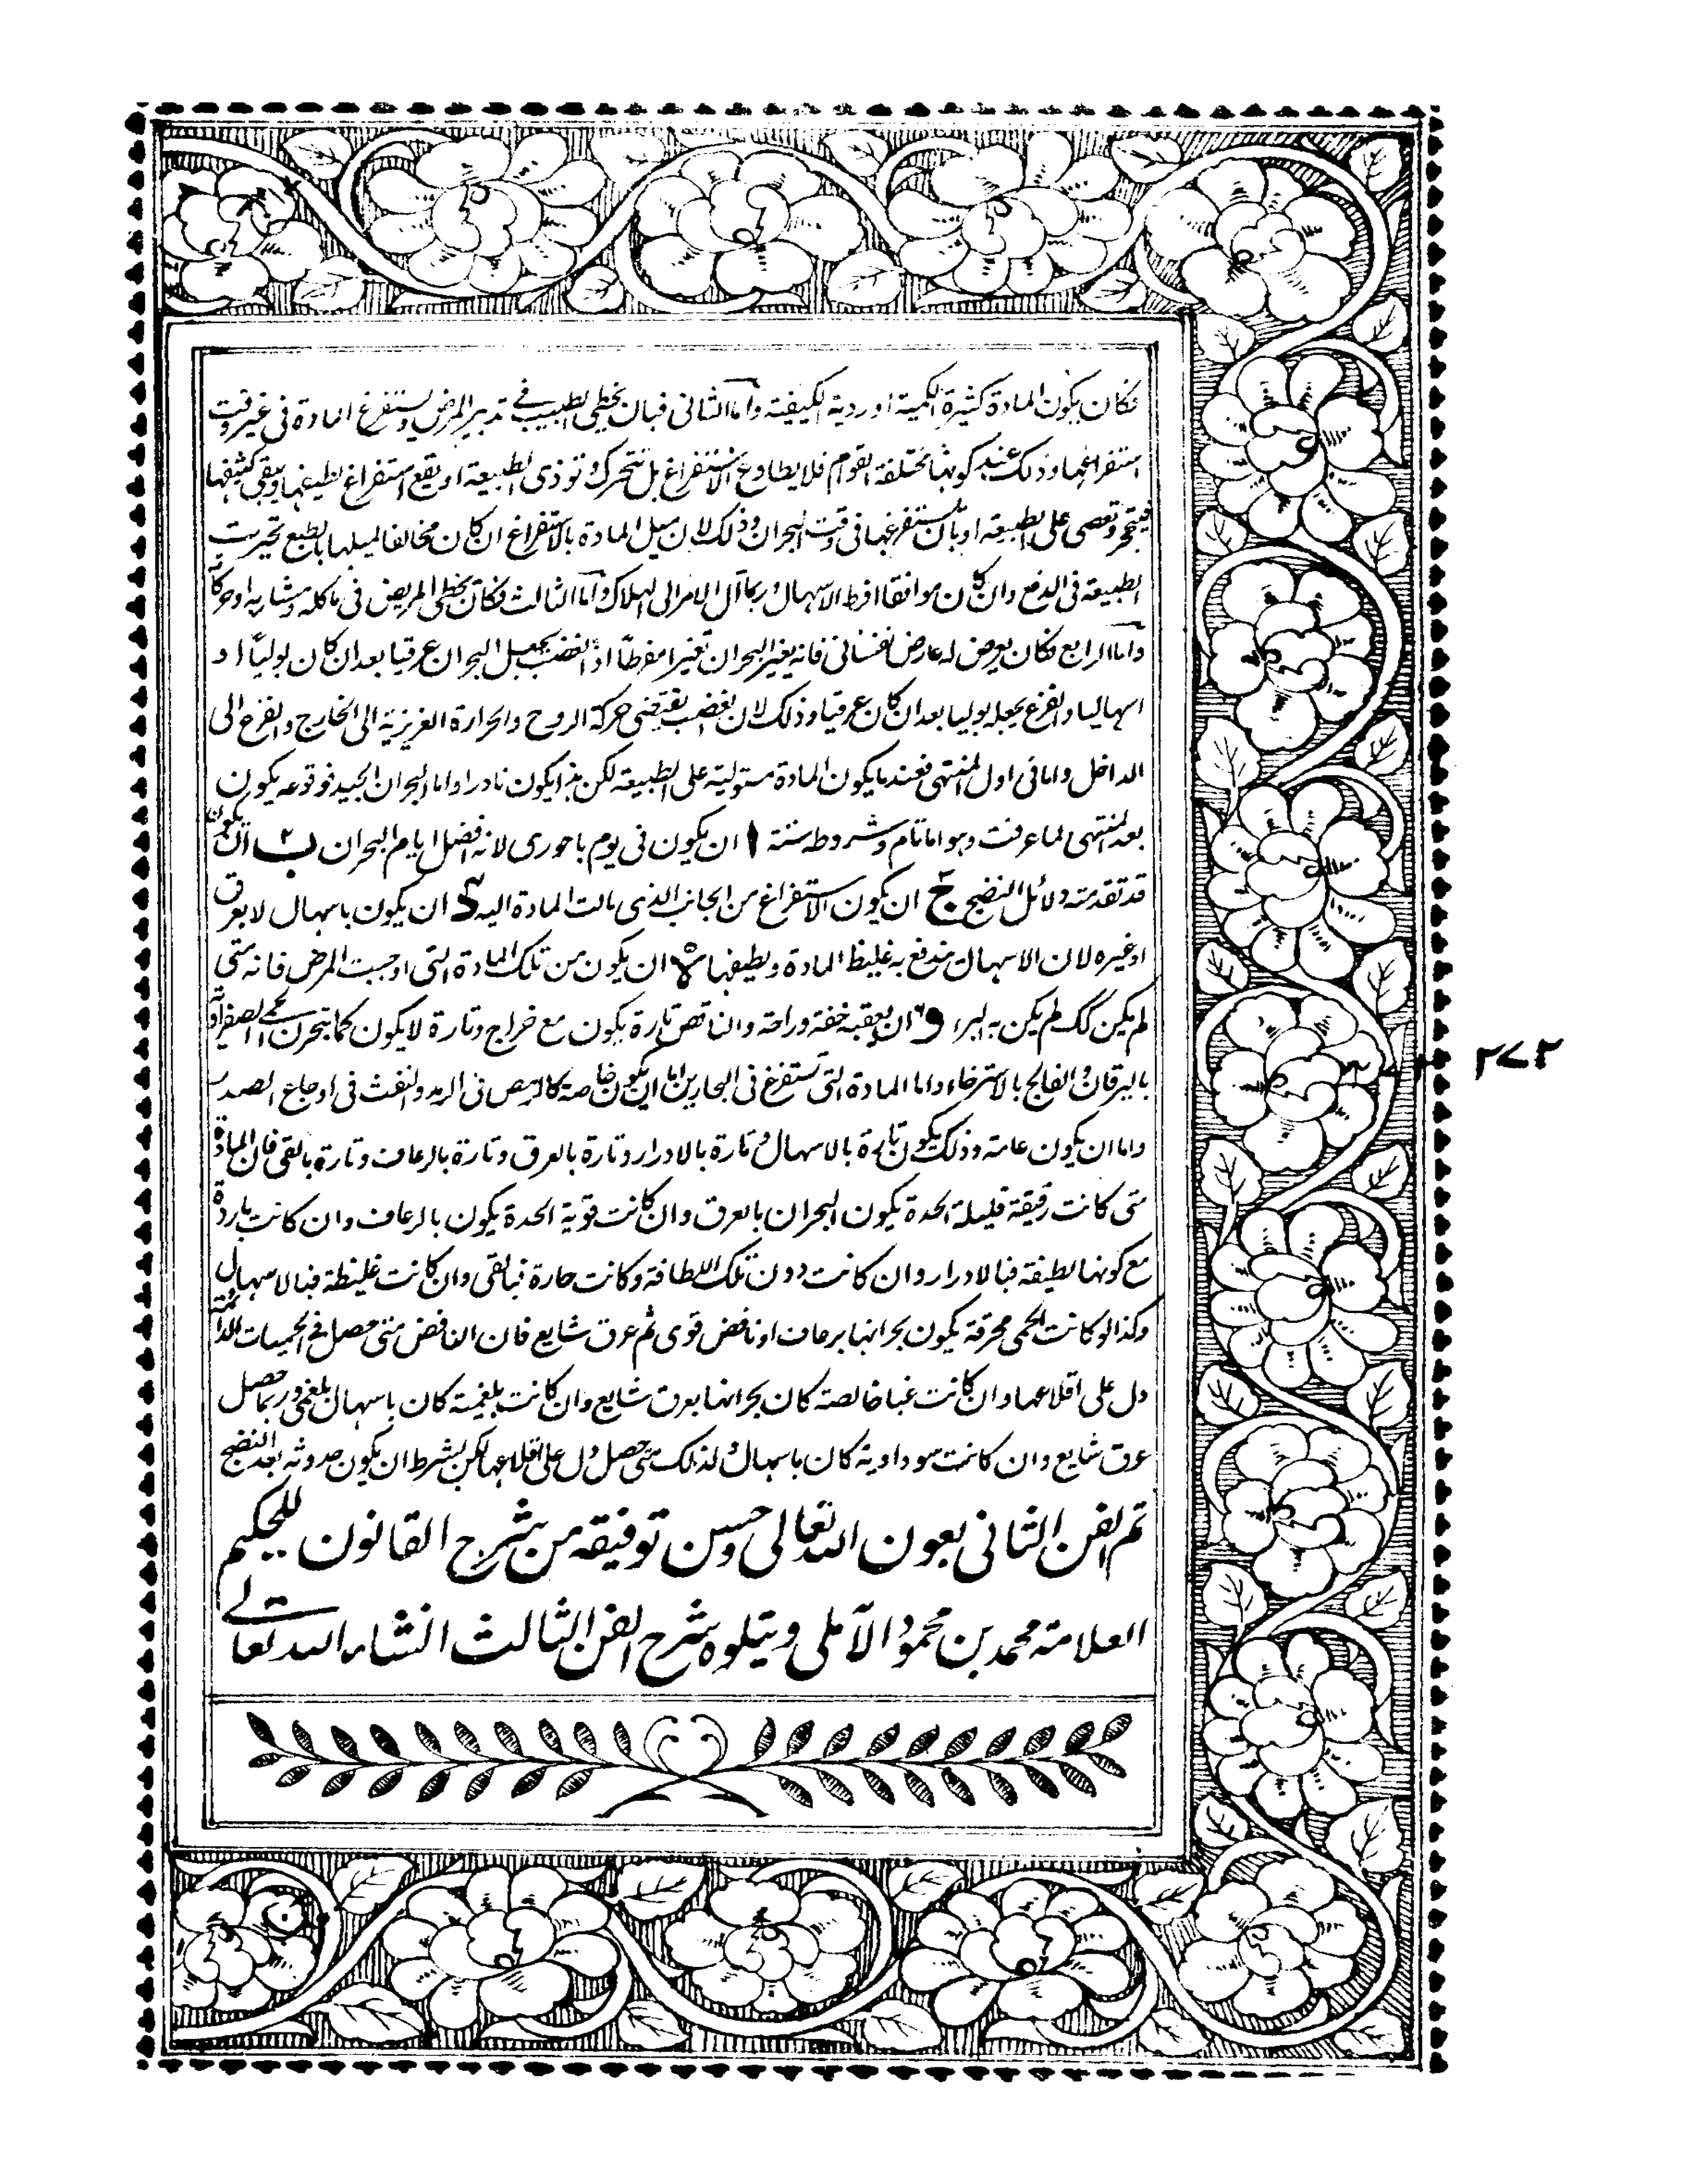 فكان يكون المادة كثيرة الكمية او ردية الكيفية واما الثانى فبان يخطى الطبيب فى تدبير المرض ويستفرغ المادة فى غير وقت
استفراغها وذلك عند كونها مختلفة القوام فلا يطاوع الاستفراغ بل تتحرك و توذى الطبيعة او يقع استفراغ لطيفها ويبقى كثيفها
فيتحجر وتعصى على الطبيعة او بان يستفرغها فى وقت البحران وذلك لان ميل المادة بالاستفراغ ان كان مخالفا لميلها بالطبع تحيرت
الطبيعة فى الدفع وان كان موافقا افرط الاسهال و ربما آل الامر الى الهلاك واما الثالث فكان يخطى المريض فى ماكله ومشاربه او حركاته
واما الرابع فكان يعرض له عارض نفسانى فانه يغير البحران تغيرا مفرطا اذ الغضب يجعل البحران عرقيا بعد ان كان بوليا او
اسهاليا والفزع يجعله بوليا بعد ان كان عرقيا وذلك لان الغضب يقتضى حركة الروح والحرارة الغريزية الى الخارج والفزع الى
الداخل واما فى اول المنتهى فعند ما يكون المادة مستولية على الطبيعة لكن هذا يكون نادرا واما البحران الجيد فوقوعه يكون
بعد المنتهى لما عرفت وهو اما تام وشروطه ستة ا ان يكون فى يوم باحورى لانه افضل ايام البحران ب ان يكون
قد تقدمته دلائل النضج ج ان يكون الاستفراغ من الجانب الذى مالت المادة اليه د ان يكون باسهال لا بعرق
او غيره لان الاسهال يندفع به غليظ المادة ولطيفها ه ان يكون من تلك المادة التى اوجبت المرض فانه متى
لم يكن كك لم يكن به البرء و ان يعقبه خفة وراحة والناقص تارة يكون مع خراج وتارة لا يكون كما يتحرن الحمى الصفراوية
باليرقان والفالج بالاسترخاء واما المادة التى تستفرغ فى البحارين اما ان يكون خاصة كالرمص فى الرمد والنفث فى اوجاع الصدر
واما ان يكون عامة وذلك يكون تارة بالاسهال وتارة بالادرار وتارة بالعرق وتارة بالرعاف وتارة بالقى فان المادة
متى كانت رقيقة قليلة الحدة يكون البحران بالعرق وان كانت قوية الحدة يكون بالرعاف وان كانت باردة
مع كونها لطيفة فبالادرار وان كانت دون تلك اللطافة وكانت حارة فبالقى وان كانت غليظة فبالاسهال
وكذا لو كانت الحمى محرقة يكون بحرانها برعاف او نافض قوى ثم عرق شايع فان النافض متى حصل فى الحميات الدائمة
دل على اقلاعها وان كانت غبا خالصة كان بحرانها بعرق شايع وان كانت بلغمية كان باسهال بلغمى وربما حصل
عرق شايع وان كانت سوداوية كان باسهال ولذلك متى حصل دل على اقلاعها لكن بشرط ان يكون حدوثه بعد النضج
تم الفن الثانى بعون الله تعالى وحسن توفيقه من شرح القانون للحكيم
العلامة محمد بن محمود الآملى ويتلوه شرح الفن الثالث انشاء الله تعالى
٢٧٢